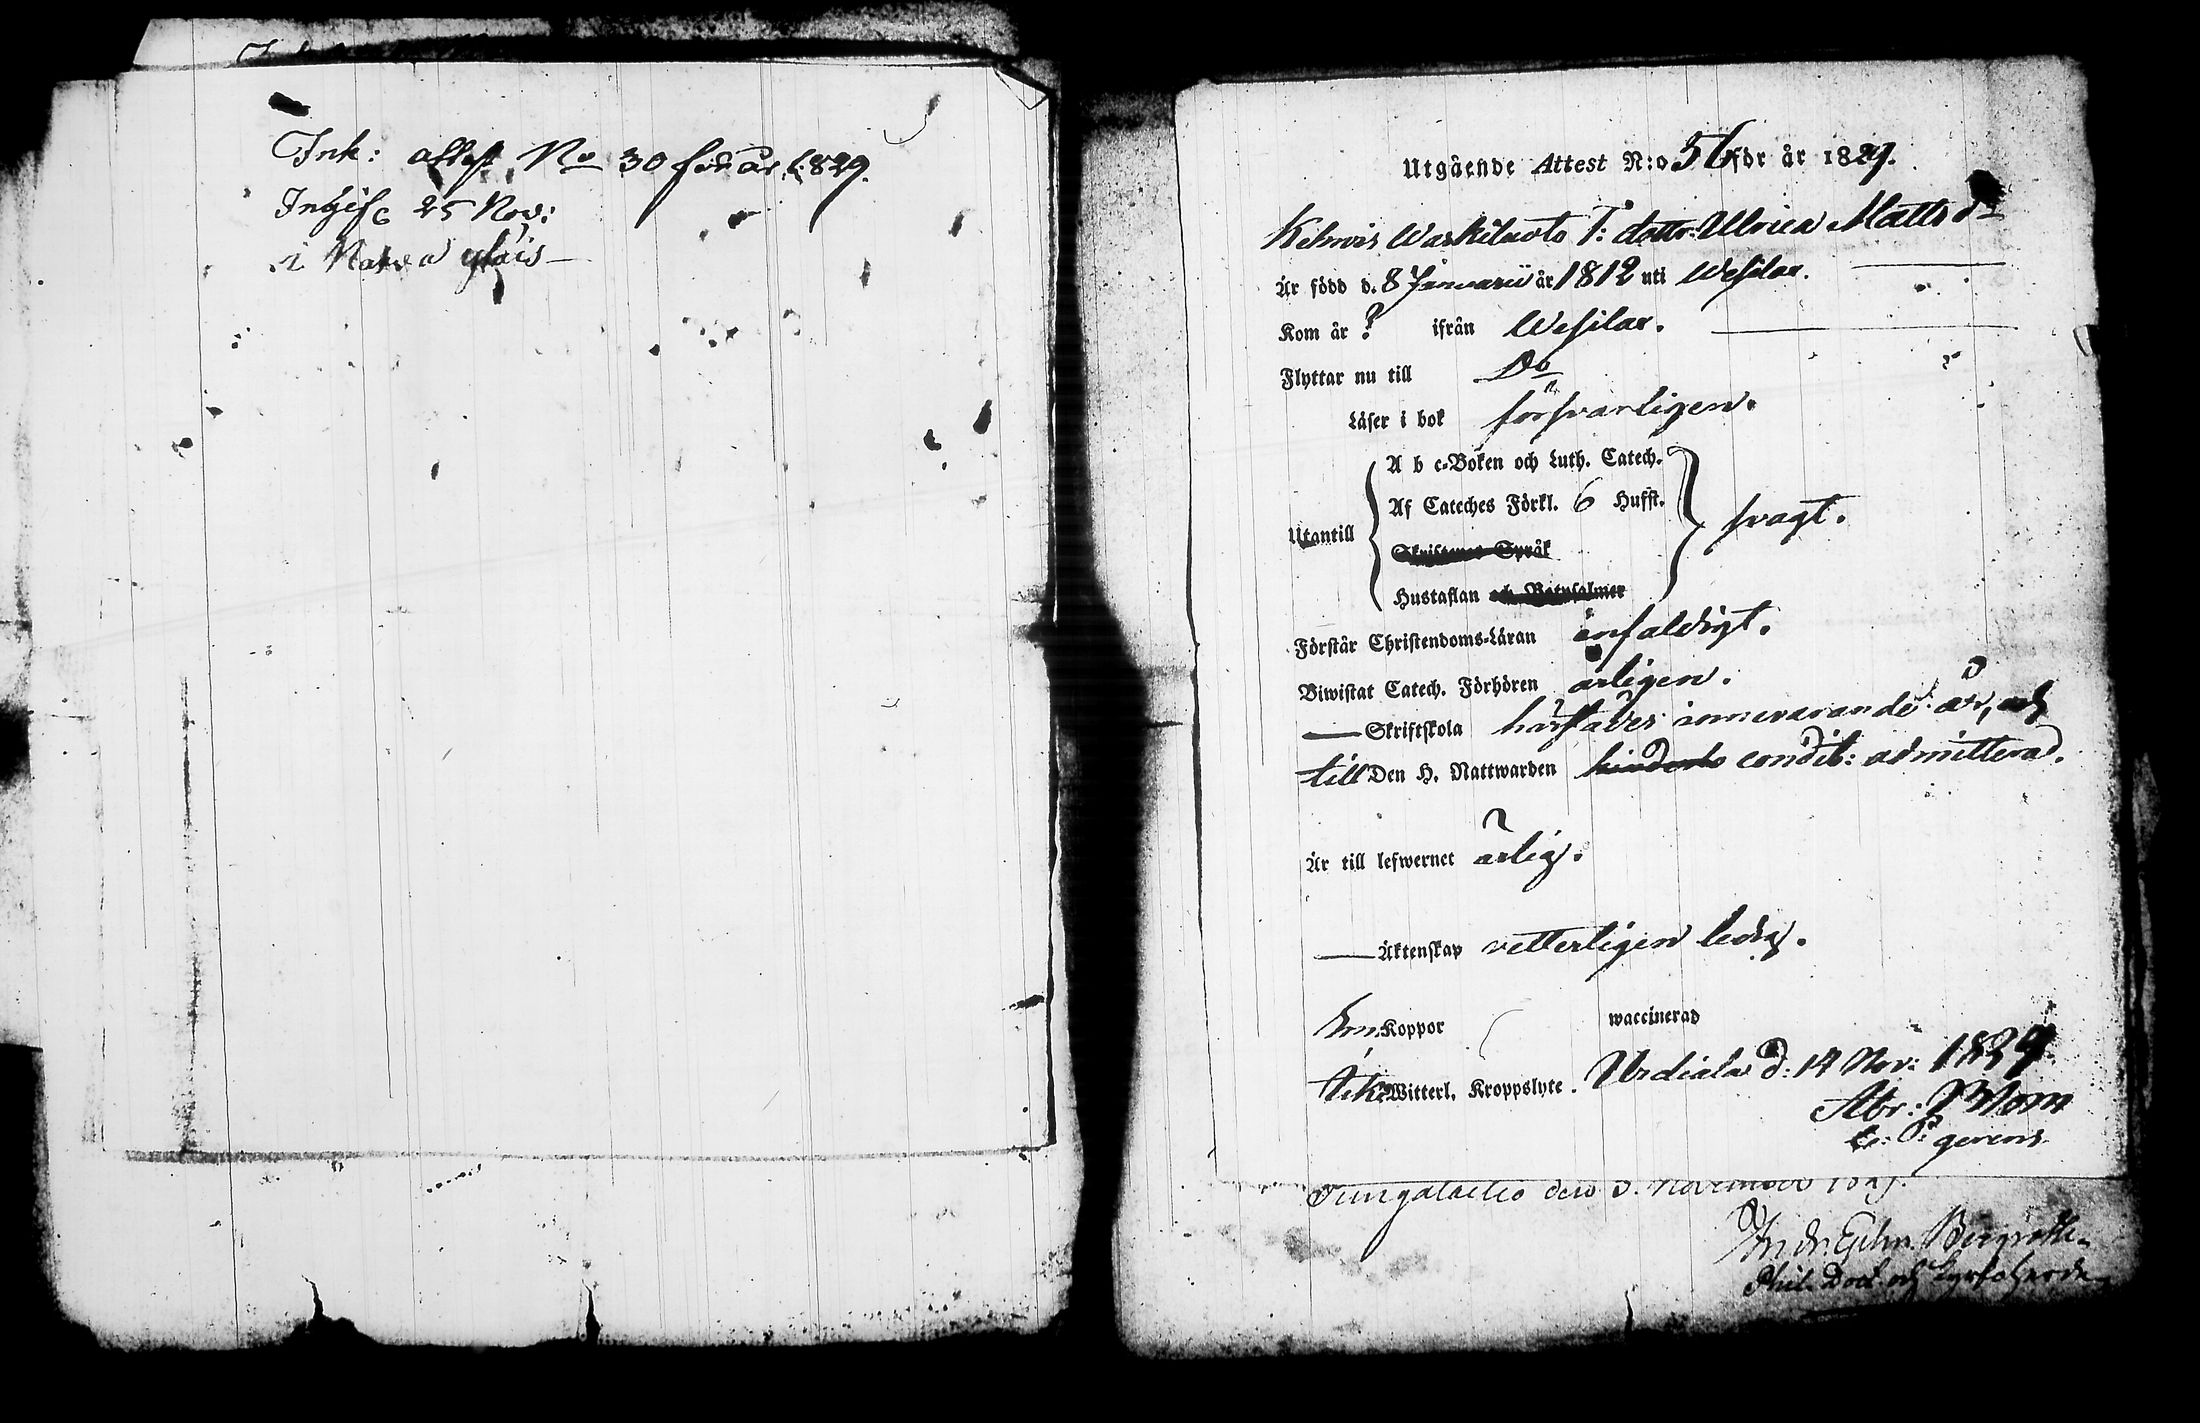 Ink: attest No 30 för år 1829.
Ingifs 25 Nov:
i Narva
Utgående Attest N:o 56 för år 1829.
Kehrois Warkilaoto T: dottr: Ulrica Matts dr
Är född d. 8 Januarii år 1812 uti Wesilax.
Kom år ? ifrån Wesilax.
Flyttar nu till Do
Läser i bok försvarligen.
A b c-Boken och Luth. Catech.
Af Cateches Förkl. 6 Hufst.
Utantill svagt.
Skriftenes Språk
Hustaflan och Botpsalmer
Förstår Christendoms-Läran enfaldigt.
Biwistat Catech. Förhören årligen.
— Skriftskola härstädes innevarande år, och
till Den H. Nattwarden condit: admitterad.
Är till lefwernet ärlig.
— Äktenskap vetterligen ledig.
Koppor waccinerad
Witterl. Kroppslyte. Urdiala d: 14 Nov: 1829.
Abr:
P: gerens
den 3. November 1829.
Andr. Bergroth
Phil. Doct. och Kyrkoherde